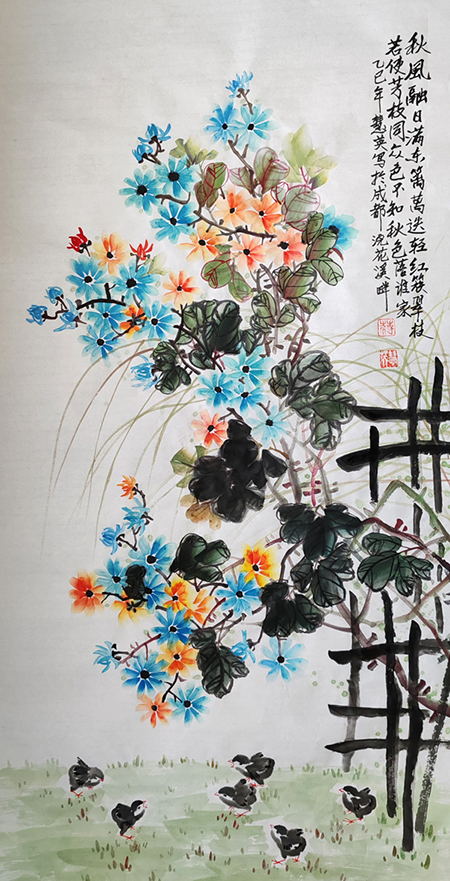 秋風融日满东篱萬迭轻红簇翠枝
若使芳枝同众色不知秋色落谁家
乙巳年慧英写於成都浣花溪畔